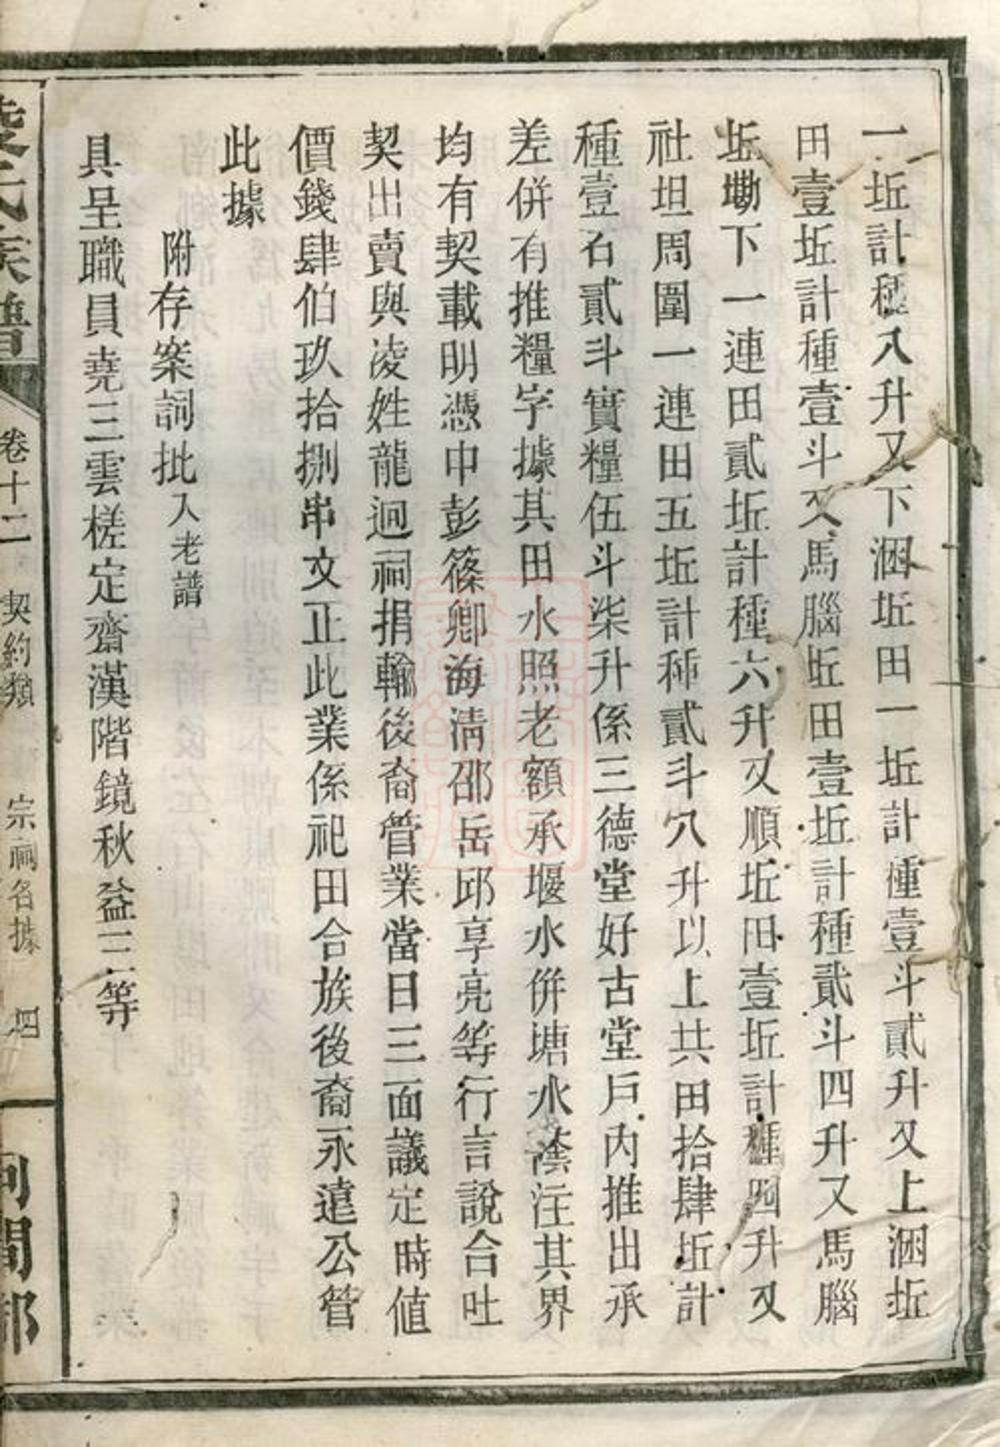 一坵計種八升又下涃坵田一坵計種壹斗貳升又上涃坵
田壹坵計種壹斗又馬腦坵田壹坵計種貳斗四升又馬腦
坵墈下一連田貳坵計種六升又順坵田壹坵計種四升又
社坦周圍一連田五坵計種貳斗六升以上共田拾肆坵計
種壹石貳斗實糧伍斗柒升係三德堂好古堂戶內推出承
差併有推糧字據其田水照老額承堰水併塘水蔭注其界
均有契載明憑中彭篠卿海清邵岳邱享亮等行言說合吐
契出賣與凌姓龍迴祠捐輸後裔管業當日三面議定時値
價錢肆伯玖拾捌串文正此業係祀田合族後裔永遠公管
此據
附存案詞批入老譜
具呈職員堯三雲槎定齋漢階鏡秋益三等
凌氏族譜
卷十二
契約類
宗祠名據
四
河間郡